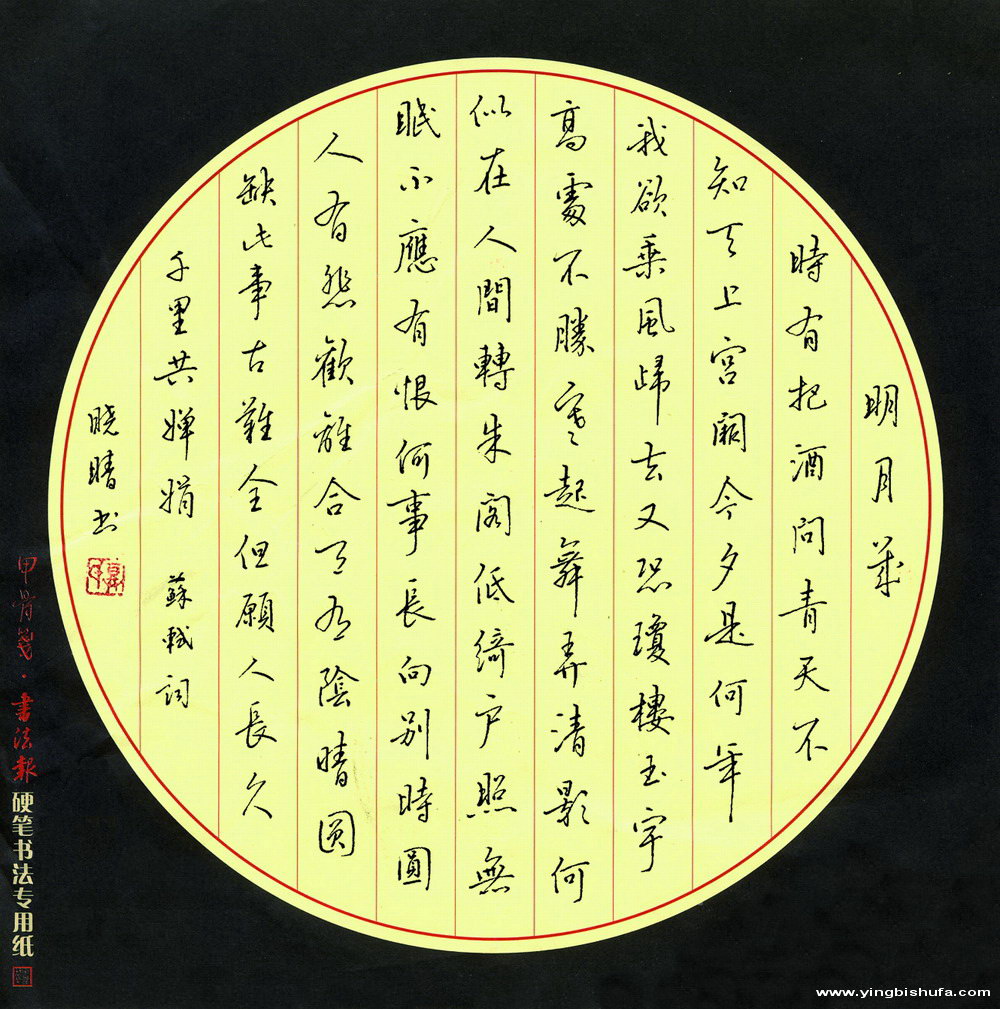 明月幾
時有把酒問青天不
知天上宮闕今夕是何年
我欲乘風歸去又恐瓊樓玉宇
高處不勝寒起舞弄清影何
似在人間轉朱閣低綺戶照無
眠不應有恨何事長向別時圓
人有悲歡離合月有陰晴圆
缺此事古難全但願人長久
千里共嬋娟 蘇軾詞
晓晴书
甲骨箋·書法報硬笔书法专用纸
www.yingbishufa.com